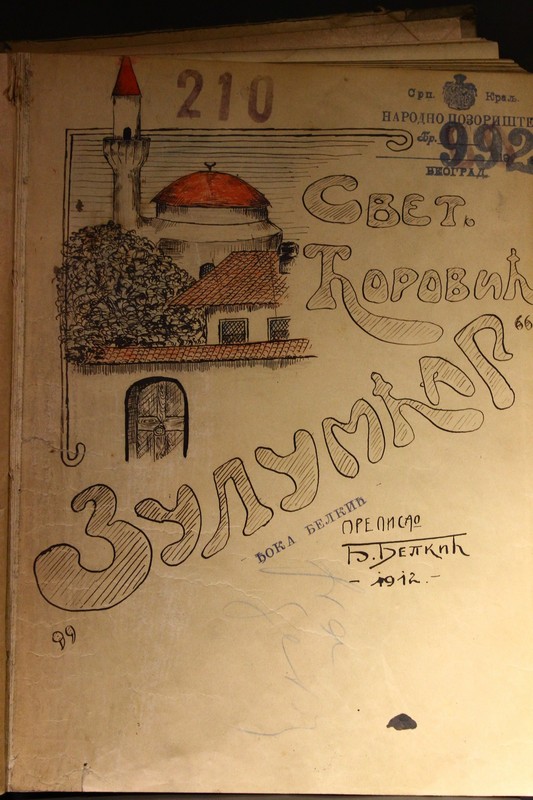 210
Срп. Краљ.
НАРОДНО ПОЗОРИШТЕ
Бр. 992
БЕОГРАД.
СВЕТ.
ЋОРОВИЋ
„ЗУЛУМЋАР“
ЂОКА БЕЛКИЋ
ПРЕПИСАО
Ђ. БЕЛКИЋ
- 1912. -